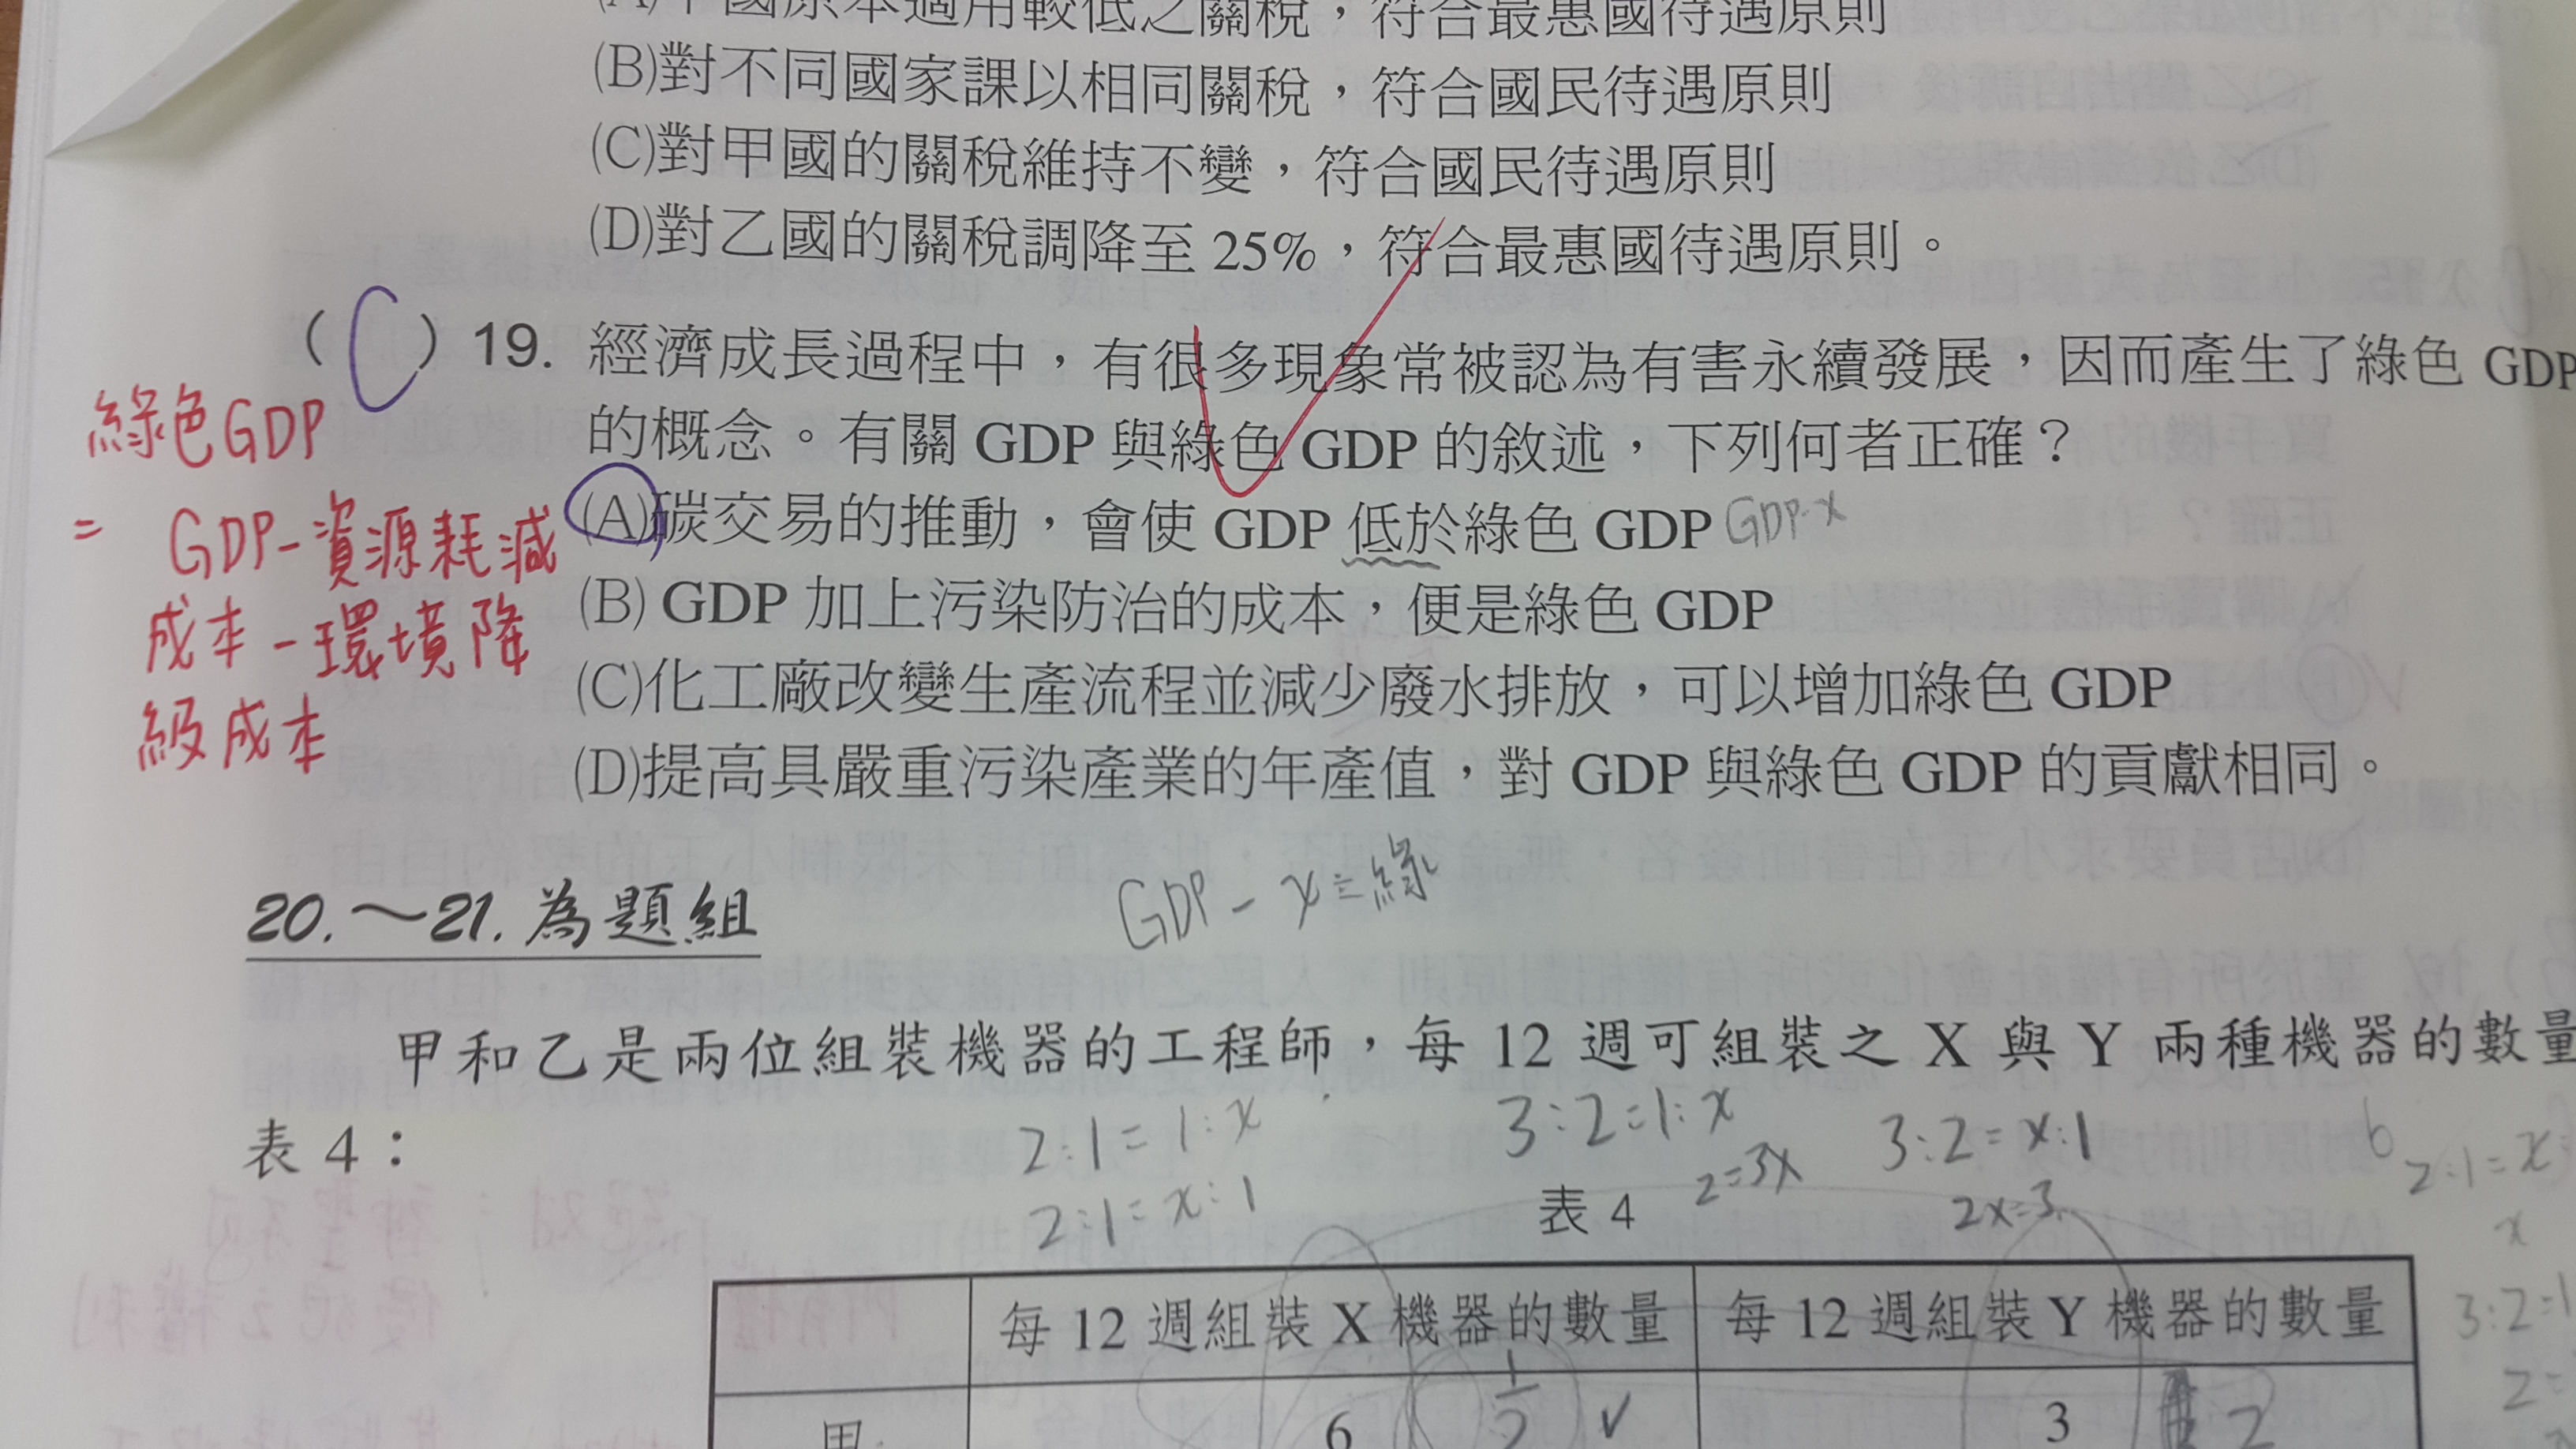 國原本適用較低之關稅，符合最惠國待遇原則
(B)對不同國家課以相同關稅，符合國民待遇原則
(C)對甲國的關稅維持不變，符合國民待遇原則
(D)對乙國的關稅調降至 25%，符合最惠國待遇原則。
( C ) 19. 經濟成長過程中，有很多現象常被認為有害永續發展，因而產生了綠色 GDP
的概念。有關 GDP 與綠色 GDP 的敘述，下列何者正確？
(A)碳交易的推動，會使 GDP 低於綠色 GDP GDP-x
(B) GDP 加上污染防治的成本，便是綠色 GDP
(C)化工廠改變生產流程並減少廢水排放，可以增加綠色 GDP
(D)提高具嚴重污染產業的年產值，對 GDP 與綠色 GDP 的貢獻相同。
綠色GDP
= GDP-資源耗減
成本-環境降
級成本
GDP - x = 綠
20.～21. 為題組
甲和乙是兩位組裝機器的工程師，每 12 週可組裝之 X 與 Y 兩種機器的數量
表 4：
2:1=1:x
2:1=x:1
3:2=1:x
2=3x
3:2=x:1
2x=3
6
2:1=x:
x
3:2=1
2=
表 4
每 12 週組裝 X 機器的數量 每 12 週組裝 Y 機器的數量
甲 6 1/2 3 2